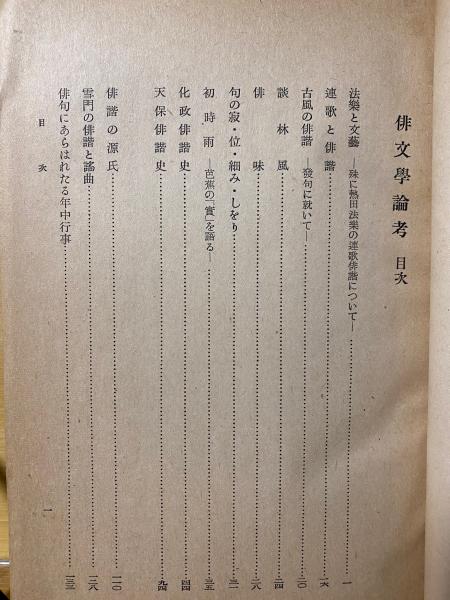 俳文學論考 目次
法樂と文藝 ―殊に熱田法樂の連歌俳諧について― 一
連歌と俳諧 一六
古風の俳諧 ―發句に就いて― 二〇
談林風 二四
俳味 二八
句の寂・位・細み・しをり 三二
初時雨 ―芭蕉の「實」を語る 三五
化政俳諧史 四四
天保俳諧史 九四
俳諧の源氏 一一〇
雪門の俳諧と謠曲 一二八
俳句にあらはれたる年中行事 一三三
目次 一